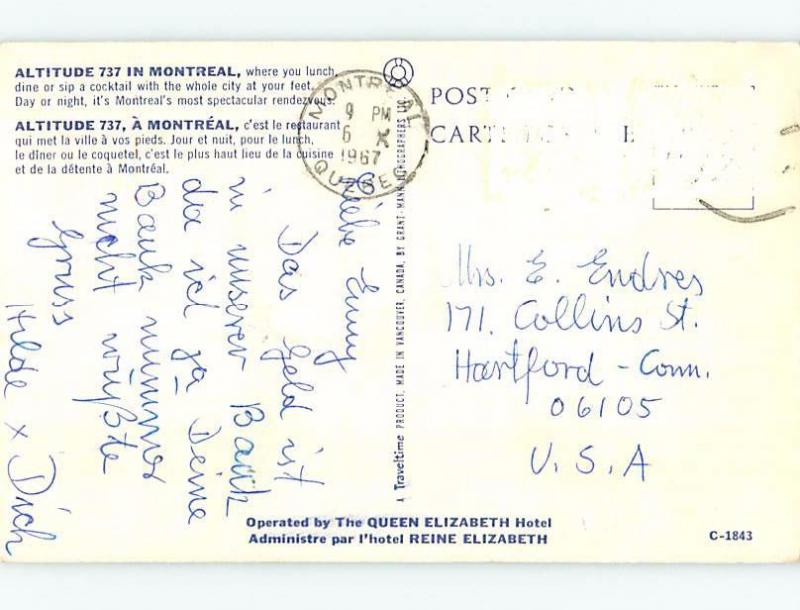 ALTITUDE 737 IN MONTREAL, where you lunch,
dine or sip a cocktail with the whole city at your feet.
Day or night, it's Montreal's most spectacular rendezvous.
ALTITUDE 737, À MONTRÉAL, c'est le restaurant
qui met la ville à vos pieds. Jour et nuit, pour le lunch,
le dîner ou le coquetel, c'est le plus haut lieu de la cuisine
et de la détente à Montréal.
MONTREAL
9 PM
6 X
1967
QUEBEC
POST
CART E
Liebe Emmy
Das Geld ist
in unserer Bank
da ich ja Deine
Bank nummer
nicht wußte
Gruss
Hilde x Dich
A Traveltime PRODUCT, MADE IN VANCOUVER, CANADA, BY GRANT-MANN LITHOGRAPHERS LTD.
Mrs. E. Endres
171. Collins St.
Hartford - Conn.
06105
U. S. A
Operated by The QUEEN ELIZABETH Hotel
Administre par l'hotel REINE ELIZABETH
C-1843